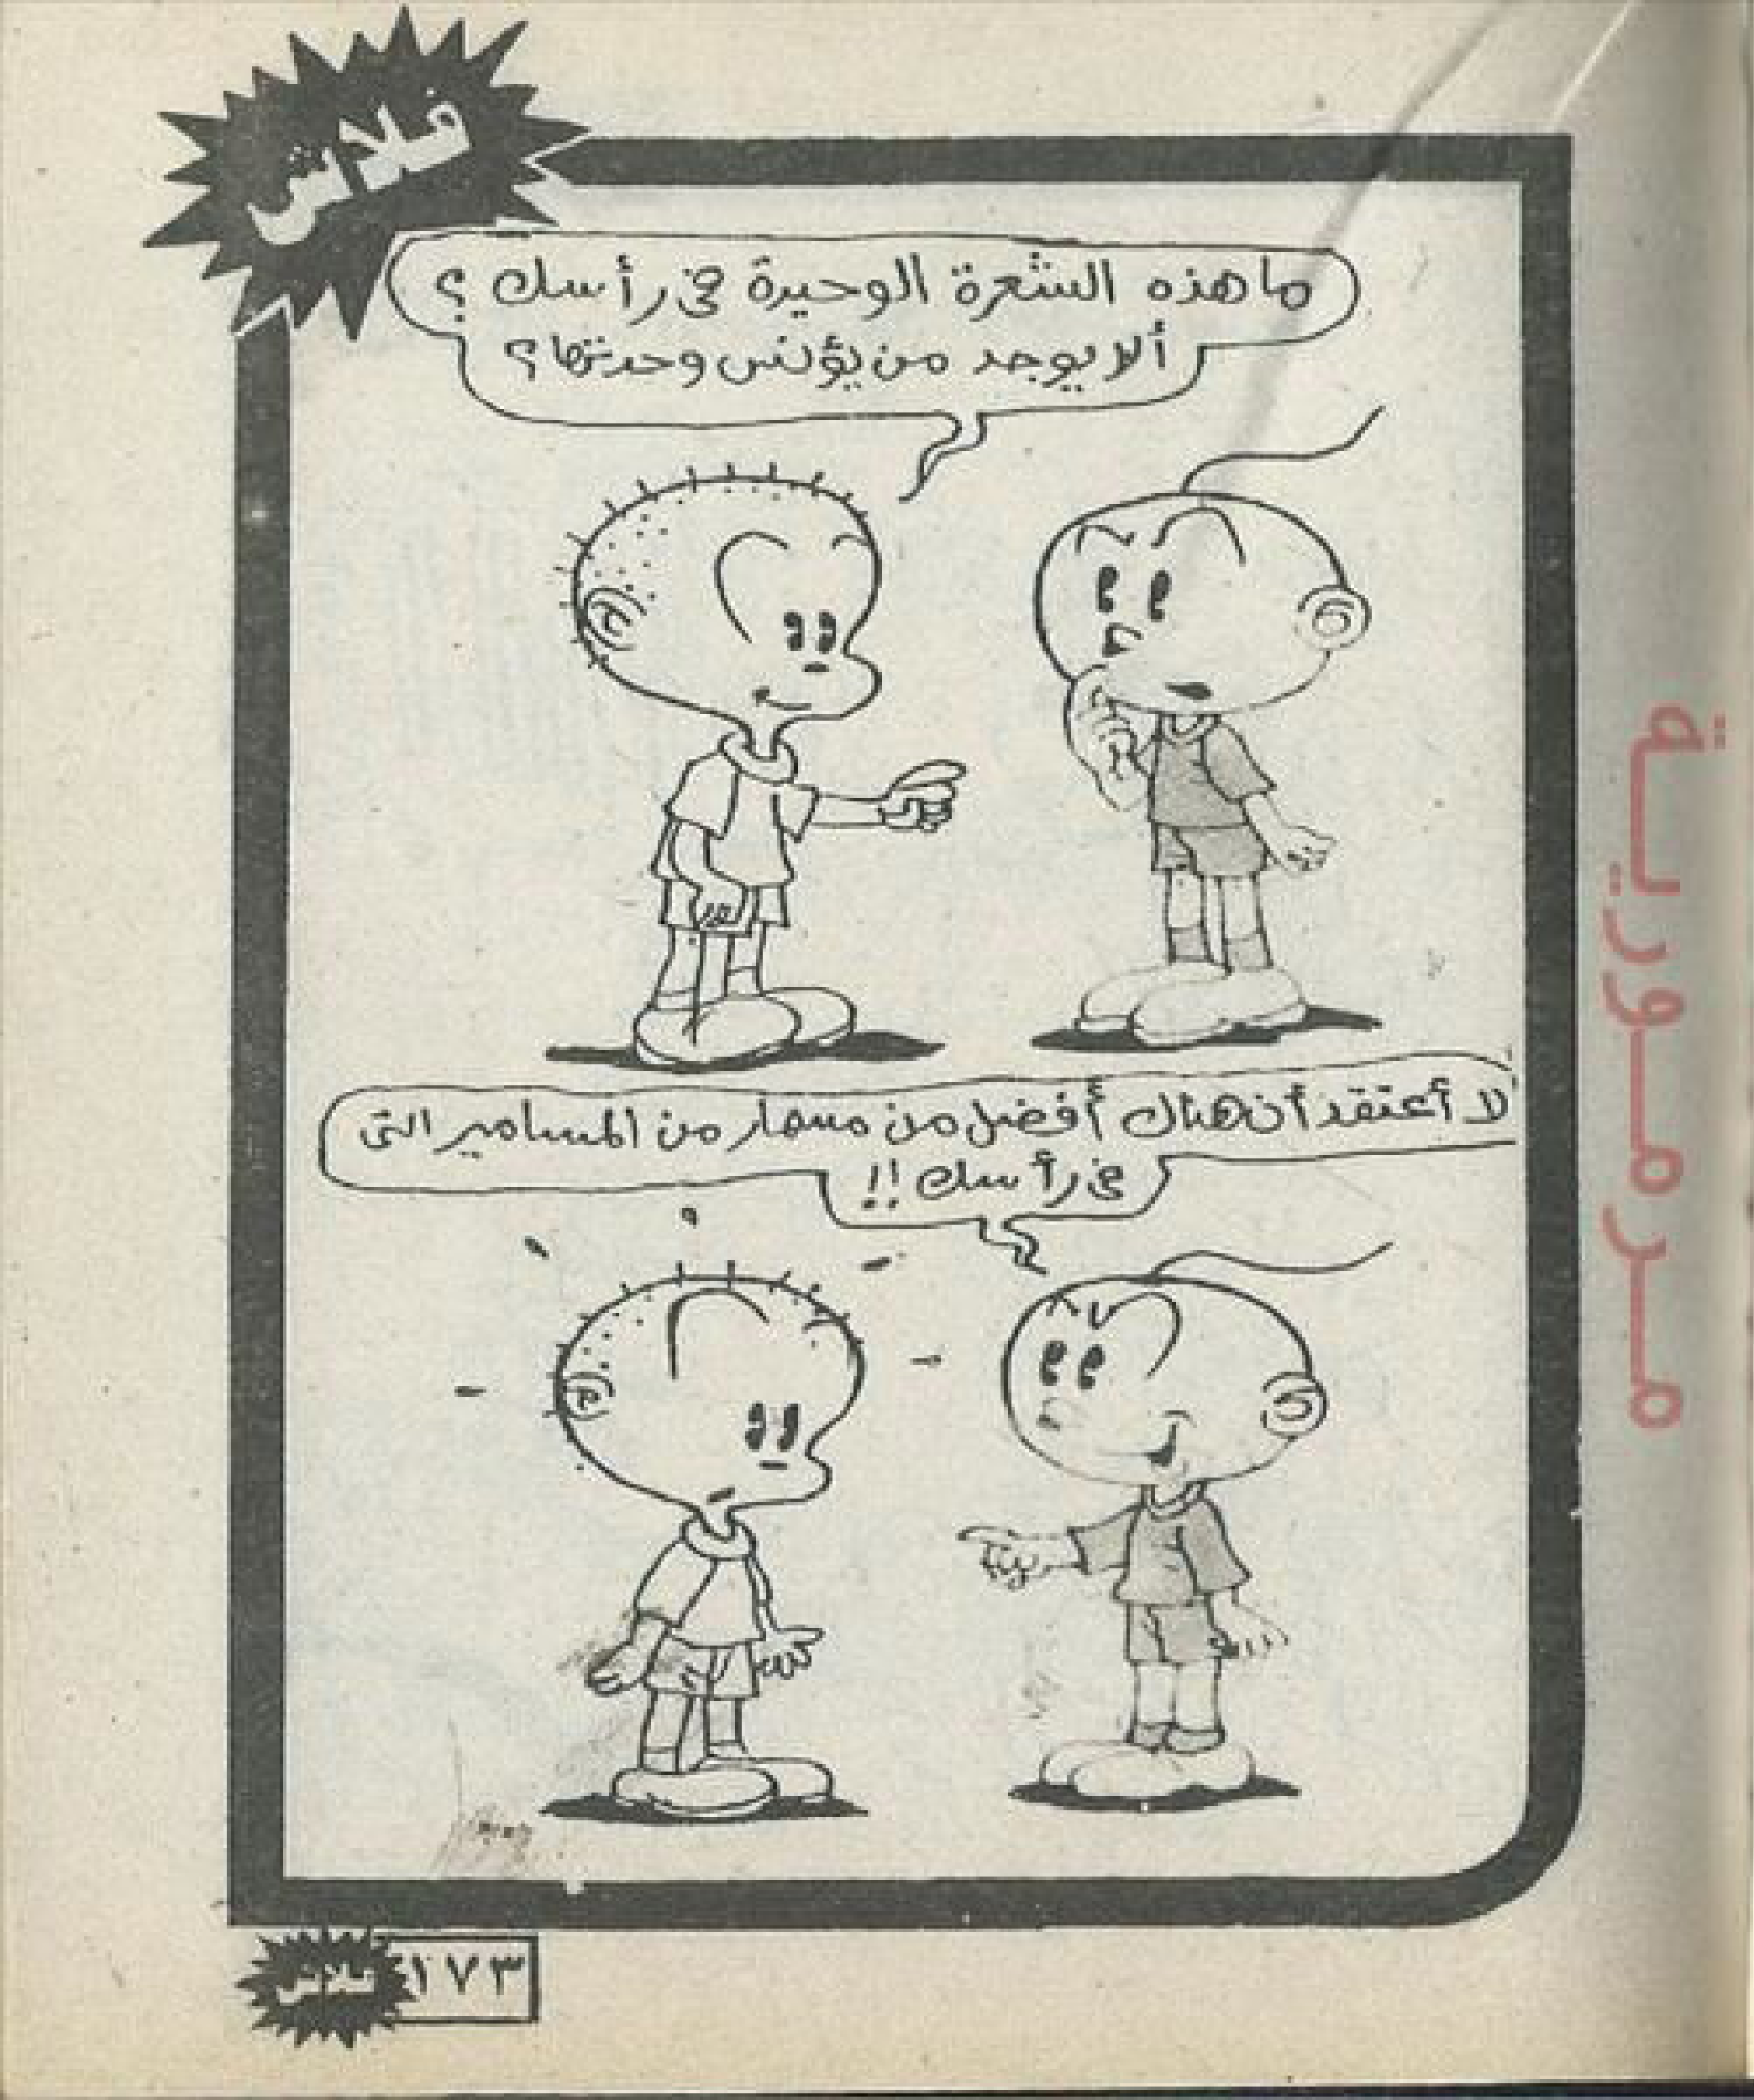 فلاش
ما هذه الشعرة الوحيدة فى رأسك ؟
ألا يوجد من يؤنس وحدتها ؟
لا أعتقد أن هناك أفضل من مسمار من المسامير التى
فى رأسك !!
مرمورية
فلاش ١٧٣